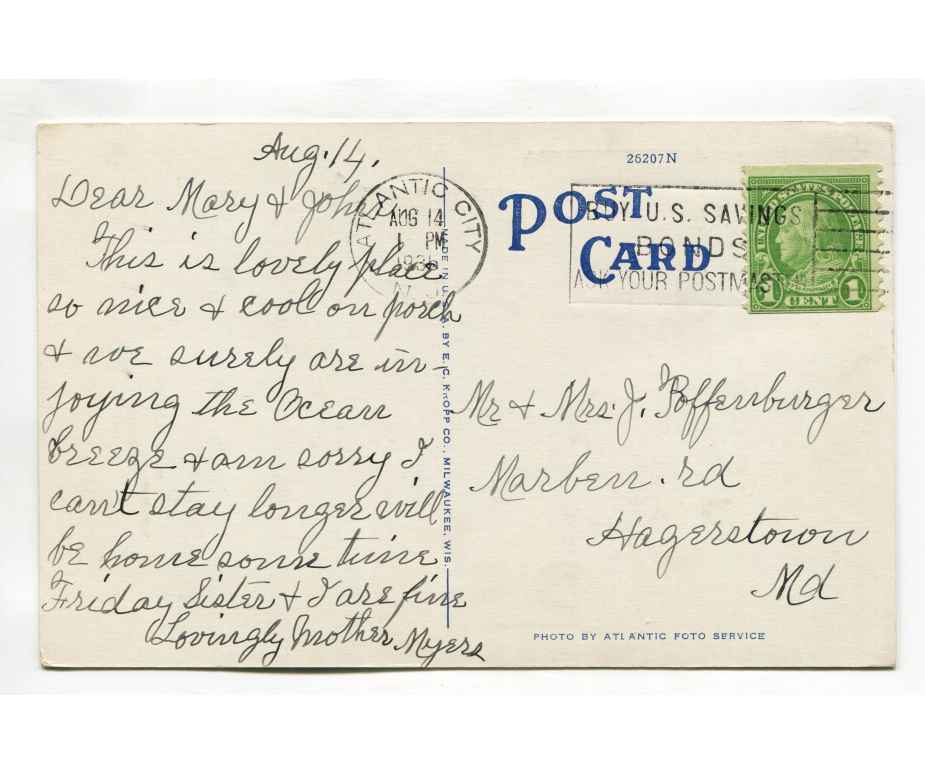 Aug. 14.
Dear Mary & John,
This is lovely place
so nice & cool on porch
& we surely are in-
joying the Ocean
breeze & am sorry I
can't stay longer will
be home some time
Friday Sister & I are fine
Lovingly Mother Myers
ATLANTIC CITY
AUG 14
PM
N.J.
MADE IN U.S.A. BY E. C. KROPP CO., MILWAUKEE, WIS.
26207N
POST
CARD
BUY U.S. SAVINGS
BONDS
ASK YOUR POSTMASTER
UNITED STATES POSTAGE
1 CENT 1
Mr & Mrs. J. Poffenburger
Marben. rd
Hagerstown
Md
PHOTO BY ATLANTIC FOTO SERVICE